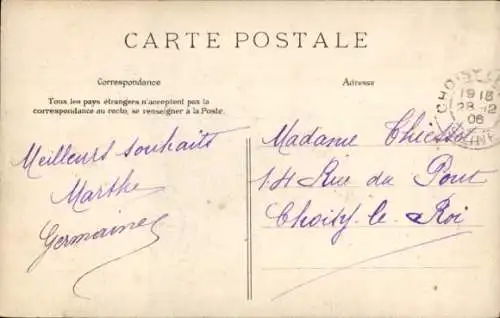 CARTE POSTALE
Correspondance
Tous les pays étrangers n'acceptent pas la
correspondance au recto, se renseigner à la Poste.
Meilleurs souhaits
Marthe
Germaine
Adresse
CHOISY
1918
28-12
06
SEINE
Madame
14 Rue du Pont
Choisy-le-Roi